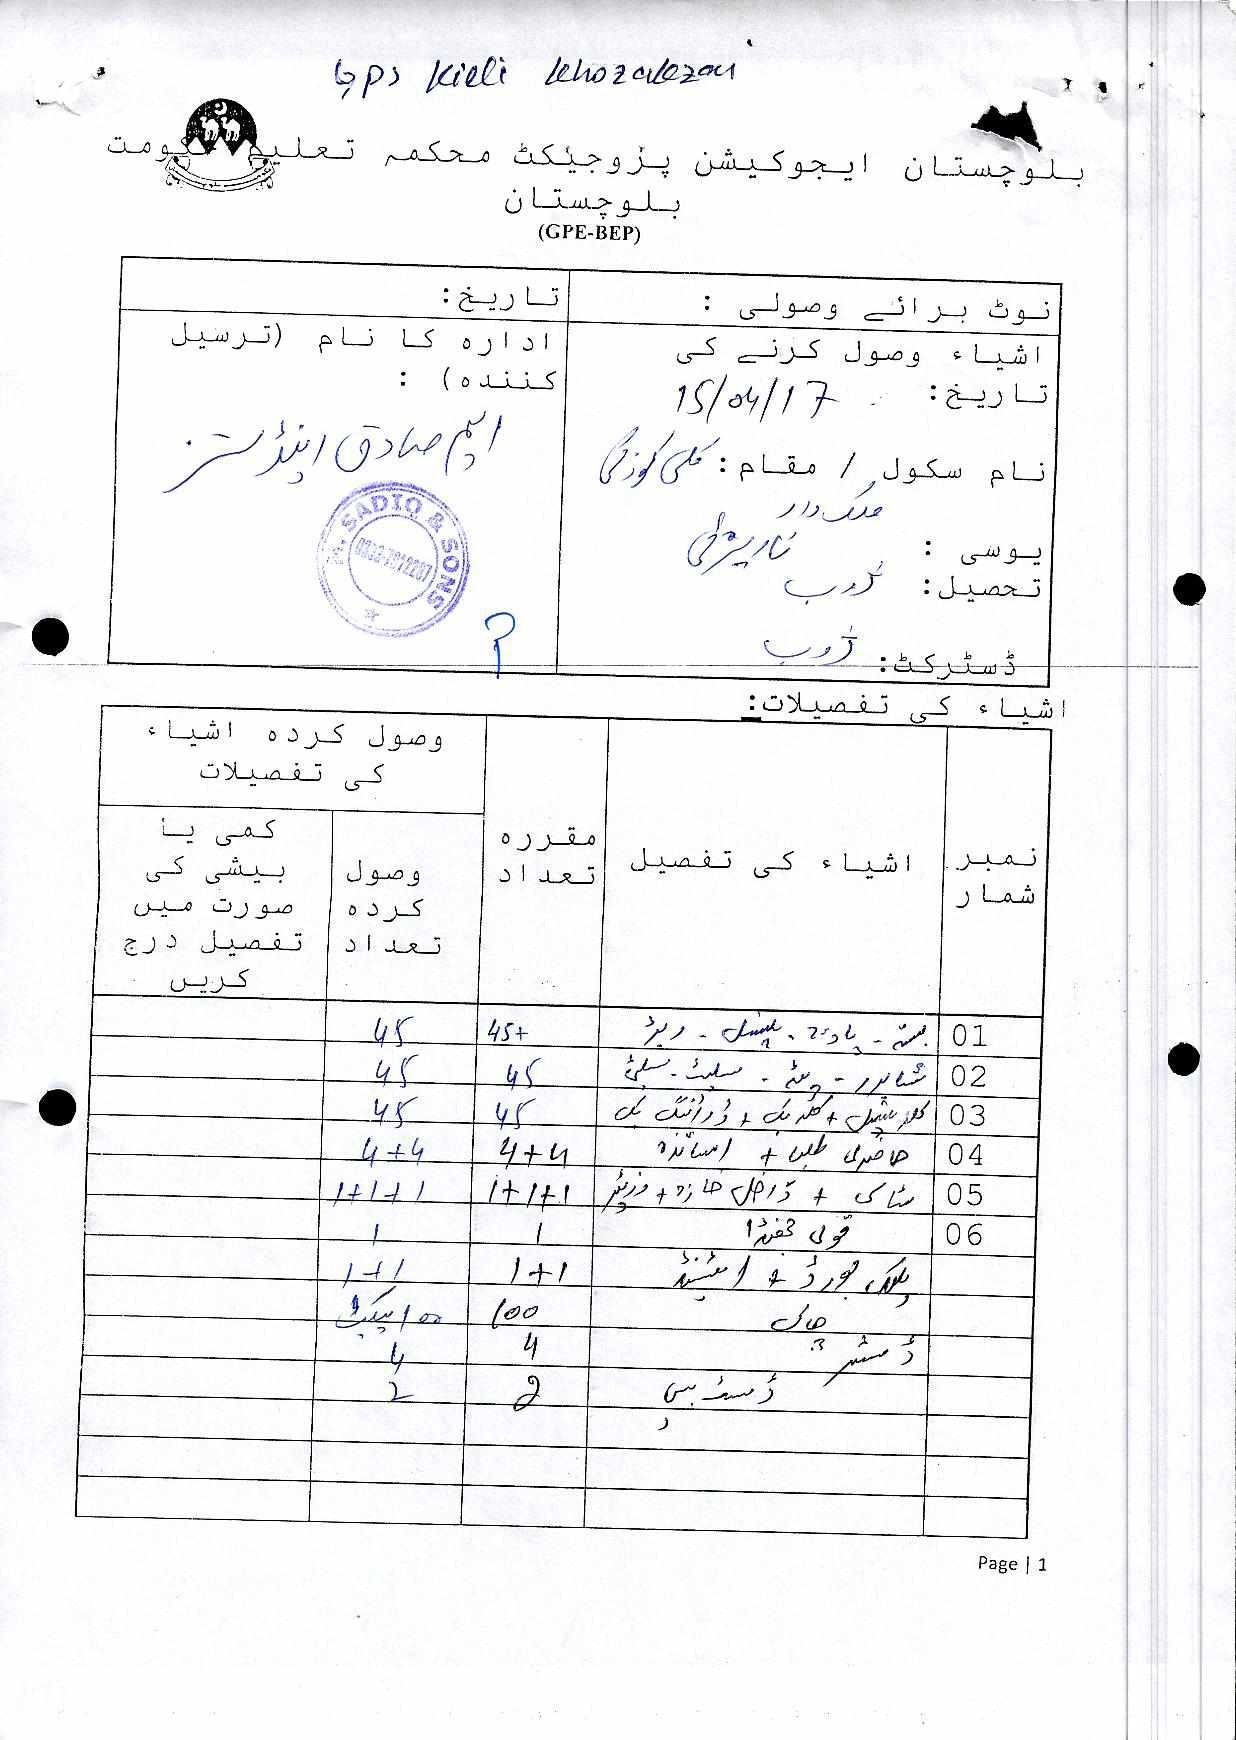 Gps Killi khozakzai
بلوچستان ایجوکیشن پروجیکٹ محکمہ تعلیم حکومت
بلوچستان
(GPE-BEP)
نوٹ برائے وصولی :
تاریخ:
اشیاء وصول کرنے کی
تاریخ: 15/04/17
نام سکول / مقام: کلی
یوسی :
تحصیل: ژوب
ڈسٹرکٹ: ژوب
ادارہ کا نام (ترسیل
کنندہ) :
ایم صادق اینڈ سنز
M. SADIQ & SONS
اشیاء کی تفصیلات:
نمبر شمار
اشیاء کی تفصیل
مقررہ تعداد
وصول کردہ اشیاء کی تفصیلات
وصول کردہ تعداد
کمی یا بیشی کی صورت میں تفصیل درج کریں
01 بستہ - - پنسل - ربڑ 45+ 45
02 شاپنر - - سلیٹ - سلیٹی 45 45
03 کلر پنسل + کلر بک + ڈرائنگ بک 45 45
04 حاضری طلبا + اساتذہ 4+4 4+4
05 سٹاک + داخل خارج + وزیٹر 1+1+1 1+1+1
06 قومی جھنڈا 1 1
بلیک بورڈ + اسٹینڈ 1+1 1+1
چاک 100 100 پیکٹ
ڈسٹر 4 4
ڈسٹ بن 2 2
Page | 1